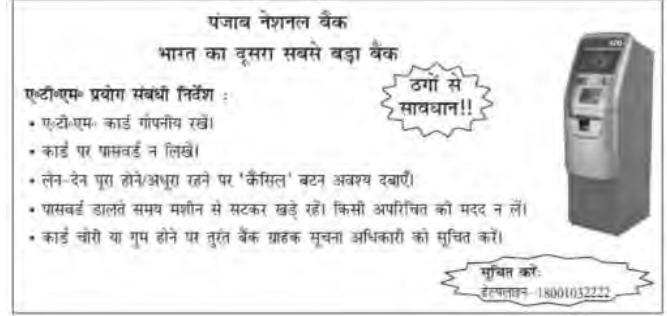 पंजाब नेशनल बैंक
भारत का दूसरा सबसे बड़ा बैंक
ठगों से
सावधान!!
ए॰टी॰एम॰ प्रयोग संबंधी निर्देश :
• ए॰टी॰एम॰ कार्ड गोपनीय रखें।
• कार्ड पर पासवर्ड न लिखें।
• लेन-देन पूरा होने/अधूरा रहने पर 'कैंसिल' बटन अवश्य दबाएँ।
• पासवर्ड डालते समय मशीन से सटकर खड़े रहें। किसी अपरिचित की मदद न लें।
• कार्ड चोरी या गुम होने पर तुरंत बैंक ग्राहक सूचना अधिकारी को सूचित करें।
सूचित करें:
हेल्पलाइन-18001032222